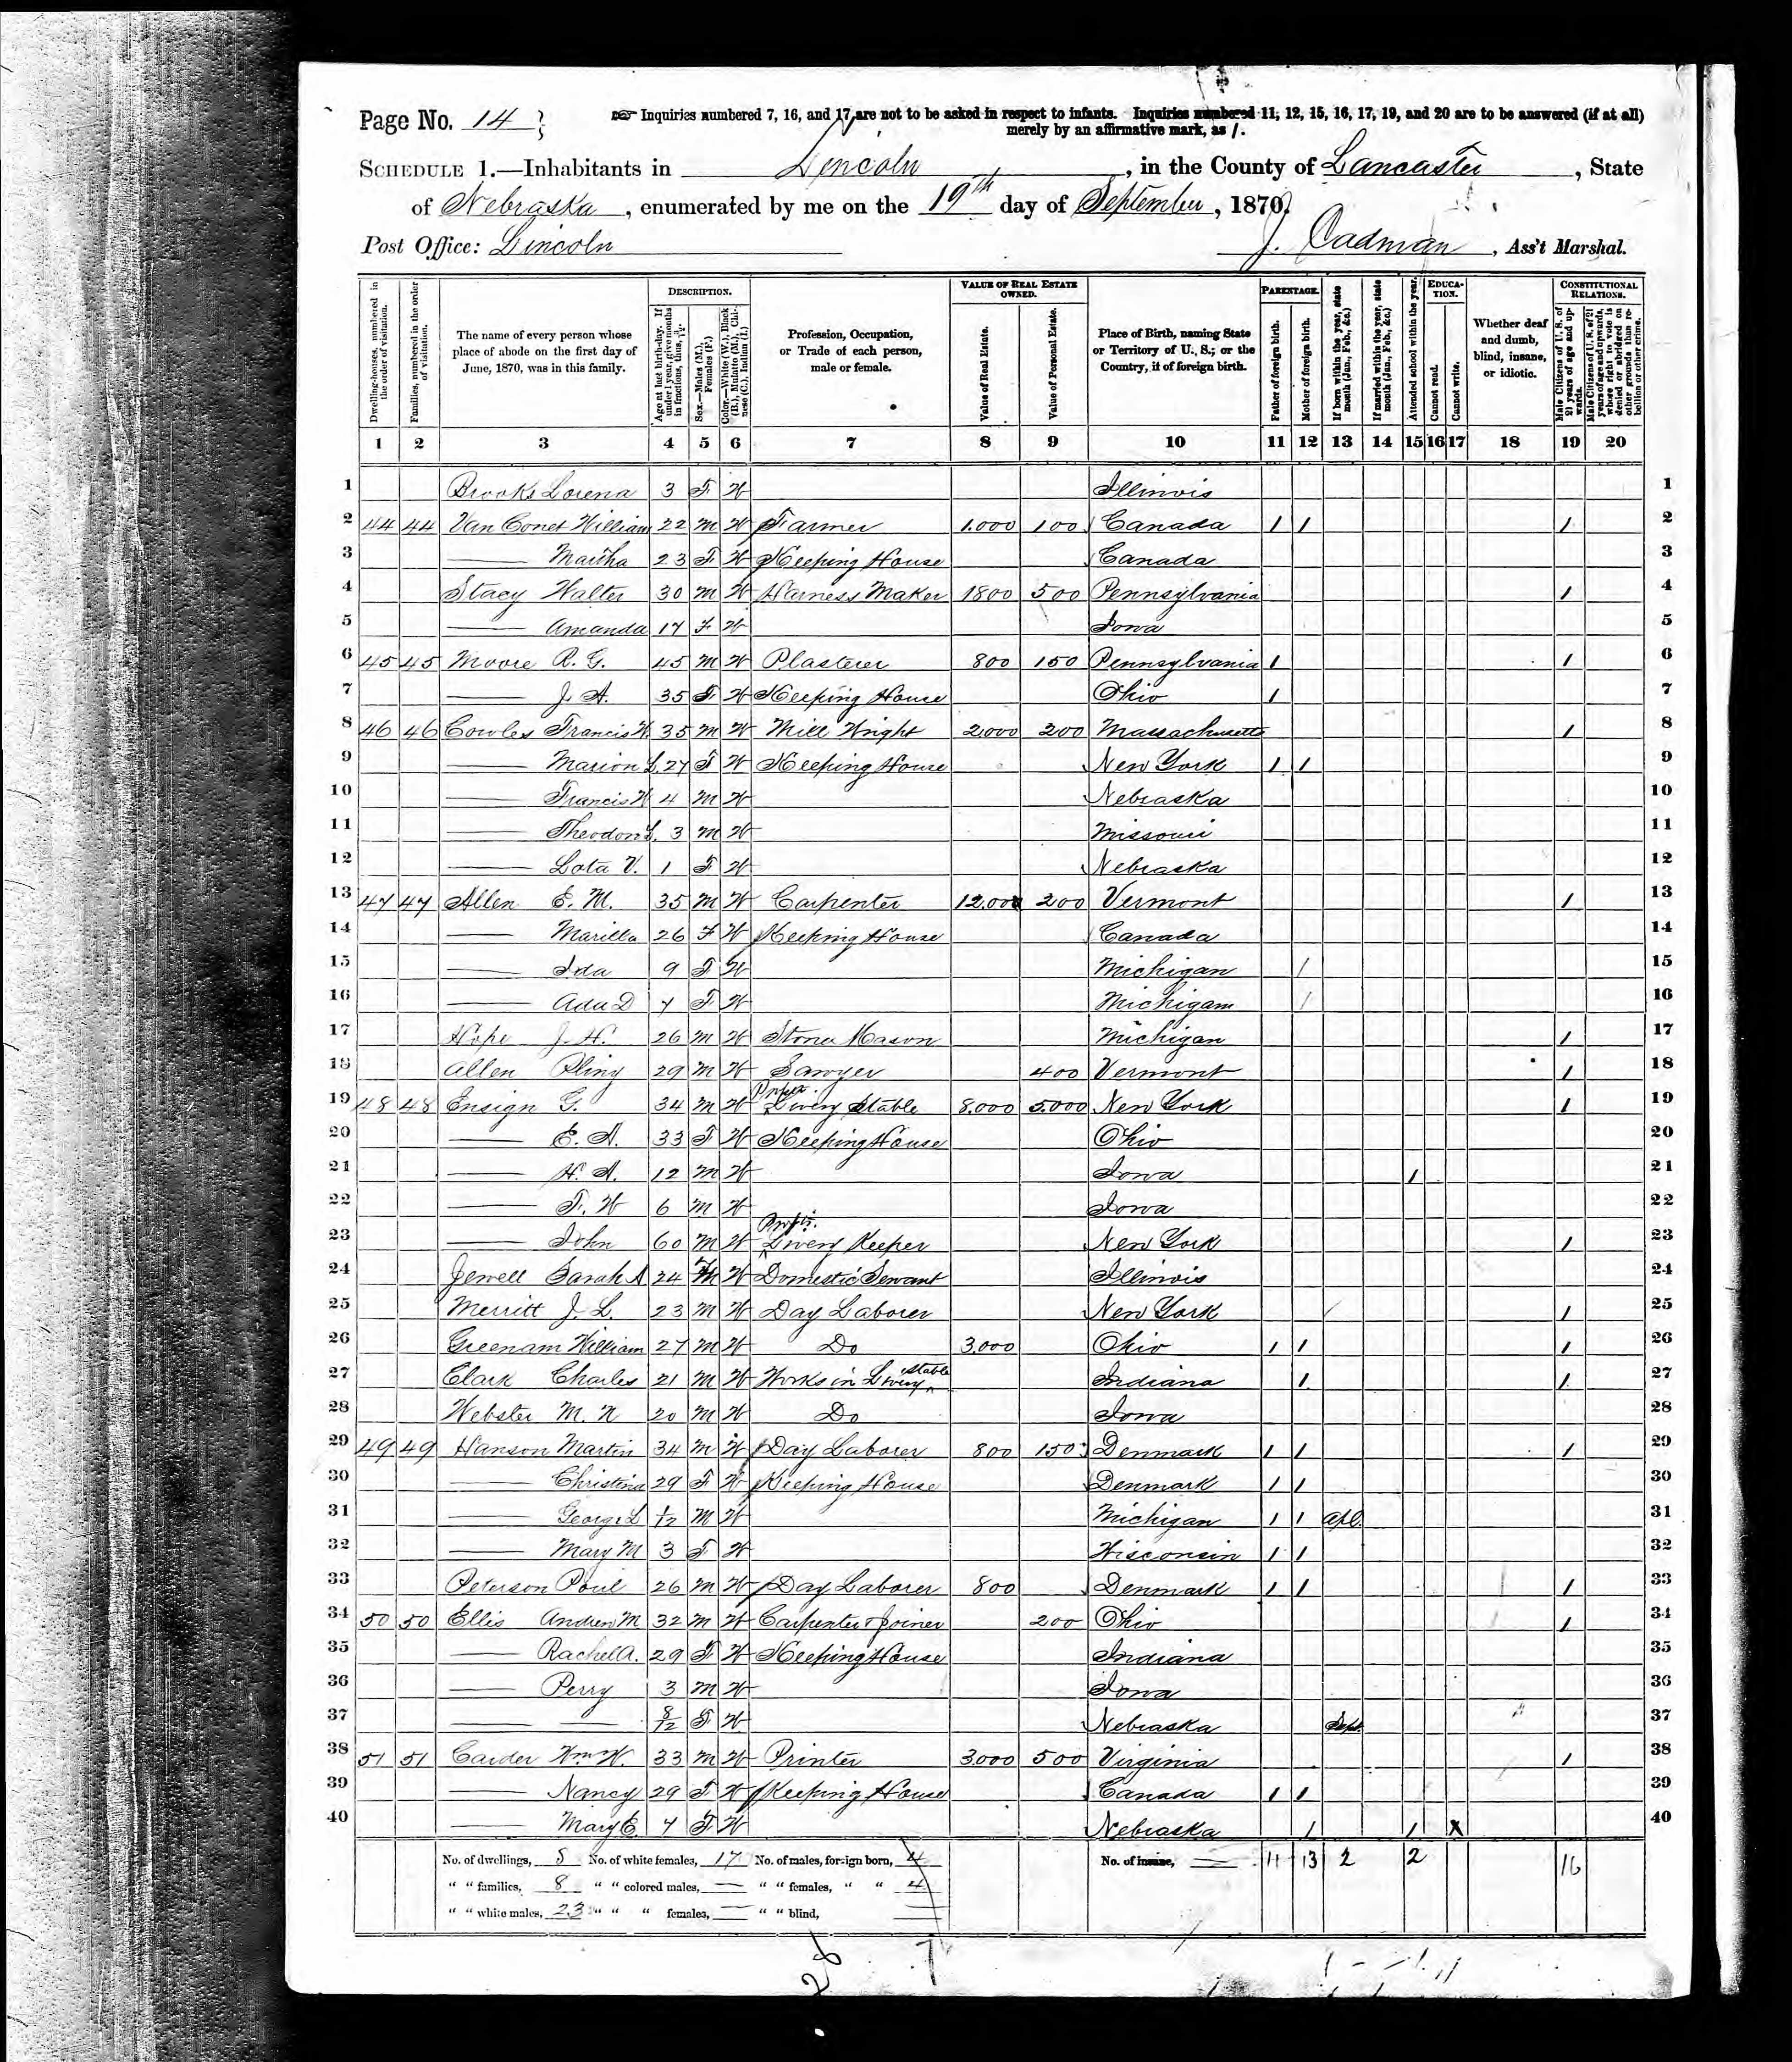 Page No. 14
☞ Inquiries numbered 7, 16, and 17 are not to be asked in respect to infants. Inquiries numbered 11, 12, 15, 16, 17, 19, and 20 are to be answered (if at all)
merely by an affirmative mark, as /.
SCHEDULE 1.—Inhabitants in Lincoln, in the County of Lancaster, State
of Nebraska, enumerated by me on the 19th day of September, 1870.
Post Office: Lincoln J. Cadman, Ass't Marshal.
Dwelling-houses, numbered in the order of visitation.
Families, numbered in the order of visitation.
The name of every person whose place of abode on the first day of June, 1870, was in this family.
DESCRIPTION.
Age at last birth-day. If under 1 year, give months in fractions, thus, 3/12.
Sex.—Males (M.), Females (F.)
Color.—White (W.), Black (B.), Mulatto (M.), Chinese (C.), Indian (I.)
Profession, Occupation, or Trade of each person, male or female.
VALUE OF REAL ESTATE OWNED.
Value of Real Estate.
Value of Personal Estate.
Place of Birth, naming State or Territory of U. S.; or the Country, if of foreign birth.
PARENTAGE.
Father of foreign birth.
Mother of foreign birth.
If born within the year, state month (Jan., Feb., &c.)
If married within the year, state month (Jan., Feb., &c.)
Attended school within the year.
EDUCATION.
Cannot read.
Cannot write.
Whether deaf and dumb, blind, insane, or idiotic.
CONSTITUTIONAL RELATIONS.
Male Citizens of U. S. of 21 years of age and upwards.
Male Citizens of U. S. of 21 years of age and upwards, whose right to vote is denied or abridged on other grounds than rebellion or other crime.
1 2 3 4 5 6 7 8 9 10 11 12 13 14 15 16 17 18 19 20
1 Brooks Lorena 3 F W Illinois 1
2 44 44 Van Conet William 22 M W Farmer 1.000 100 Canada / / / 2
3 —— Martha 23 F W Keeping House Canada 3
4 Stacy Walter 30 M W Harness Maker 1800 500 Pennsylvania / 4
5 —— Amanda 17 F W Iowa 5
6 45 45 Moore R. G. 45 M W Plasterer 800 150 Pennsylvania / / 6
7 —— J. A. 35 F W Keeping House Ohio / 7
8 46 46 Cowles Francis W. 35 M W Mill Wright 2.000 200 Massachusetts / 8
9 —— Marion L. 27 F W Keeping House New York / / 9
10 —— Francis W 4 M W Nebraska 10
11 —— Theodore L. 3 M W Missouri 11
12 —— Lota V. 1 F W Nebraska 12
13 47 47 Allen E. M. 35 M W Carpenter 12.000 200 Vermont / 13
14 —— Marilla 26 F W Keeping House Canada 14
15 —— Ida 9 F W Michigan / 15
16 —— Ada D 7 F W Michigan / 16
17 Hope J. H. 26 M W Stone Mason Michigan / 17
18 Allen Pliny 29 M W Sawyer 400 Vermont / 18
19 48 48 Ensign G. 34 M W Livery Stable 8.000 5.000 New York / 19
20 —— E. A. 33 F W Keeping House Ohio 20
21 —— H. A. 12 M W Iowa / 21
22 —— F. W 6 M W Iowa 22
23 —— John 60 M W Livery Keeper New York / 23
24 Jewell Sarah A 24 W Domestic Servant Illinois 24
25 Merritt J. L. 23 M W Day Laborer New York / 25
26 Greenam William 27 M W Do 3.000 Ohio / / / 26
27 Clark Charles 21 M W Works in Livery Stable Indiana / / 27
28 Webster M. N 20 M W Do Iowa 28
29 49 49 Hanson Martin 34 M W Day Laborer 800 150 Denmark / / / 29
30 —— Christina 29 F W Keeping House Denmark / / 30
31 —— George L 1/12 M W Michigan / / Apl. 31
32 —— Mary M 3 F W Wisconsin / / 32
33 Peterson Poul 26 M W Day Laborer 800 Denmark / / / 33
34 50 50 Ellis Andrew M 32 M W Carpenter & Joiner 200 Ohio / 34
35 —— Rachel A. 29 F W Keeping House Indiana 35
36 —— Perry 3 M W Iowa 36
37 —— —— 8/12 F W Nebraska Sept. 37
38 51 51 Carder Wm W. 33 M W Printer 3.000 500 Virginia / 38
39 —— Nancy 29 F W Keeping House Canada / / 39
40 —— Mary E. 7 F W Nebraska / / X 40
No. of dwellings, 8 No. of white females, 17 No. of males, foreign born, 4 No. of insane, —— 11 13 2 2 16
" " families, 8 " " colored males, — " " females, " " 4
" " white males, 23 " " " females, — " " blind, ——
28